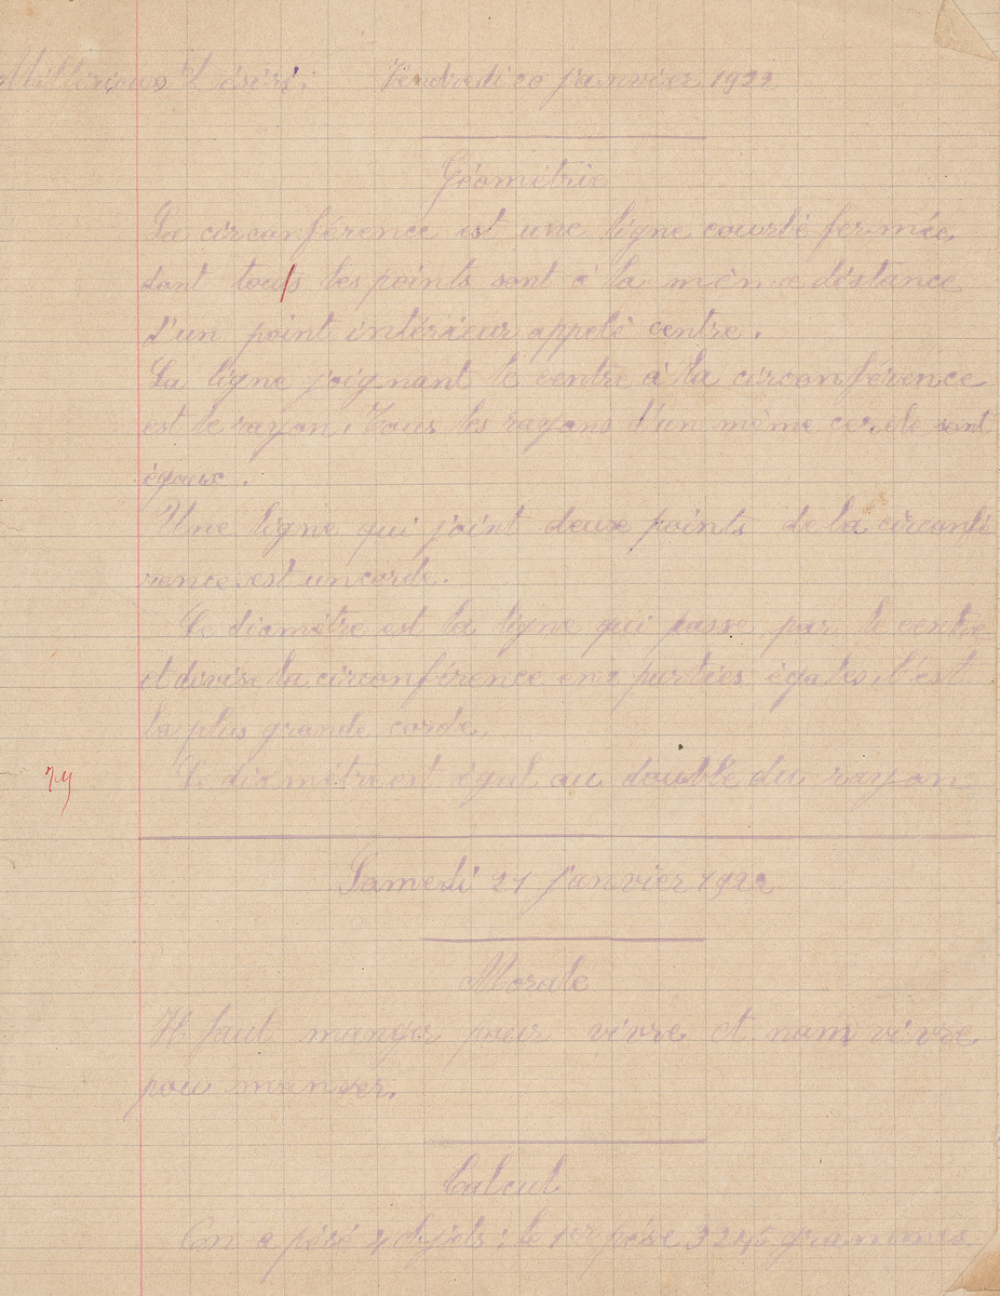 Vendredi 20 janvier 1922
Géométrie
La circonférence est une ligne courbe fermée,
dont tous les points sont à la même distance
d'un point intérieur appelé centre.
La ligne joignant le centre à la circonférence
est le rayon. Tous les rayons d'un même cercle sont
égaux.
Une ligne qui joint deux points de la circonfé
rence est un corde.
Le diamètre est la ligne qui passe par le centre
et divise la circonférence en 2 parties égales, c'est
la plus grande corde.
Le diamètre est égal au double du rayon
Samedi 21 janvier 1922
Morale
Il faut manger pour vivre et nom vivre
pou manger.
Calcul
On a pesé 4 objets : le 1er pèse 3245 grammes